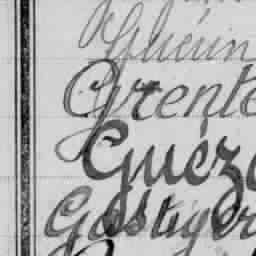 Guérin
Grente
Guéz
Gastiger